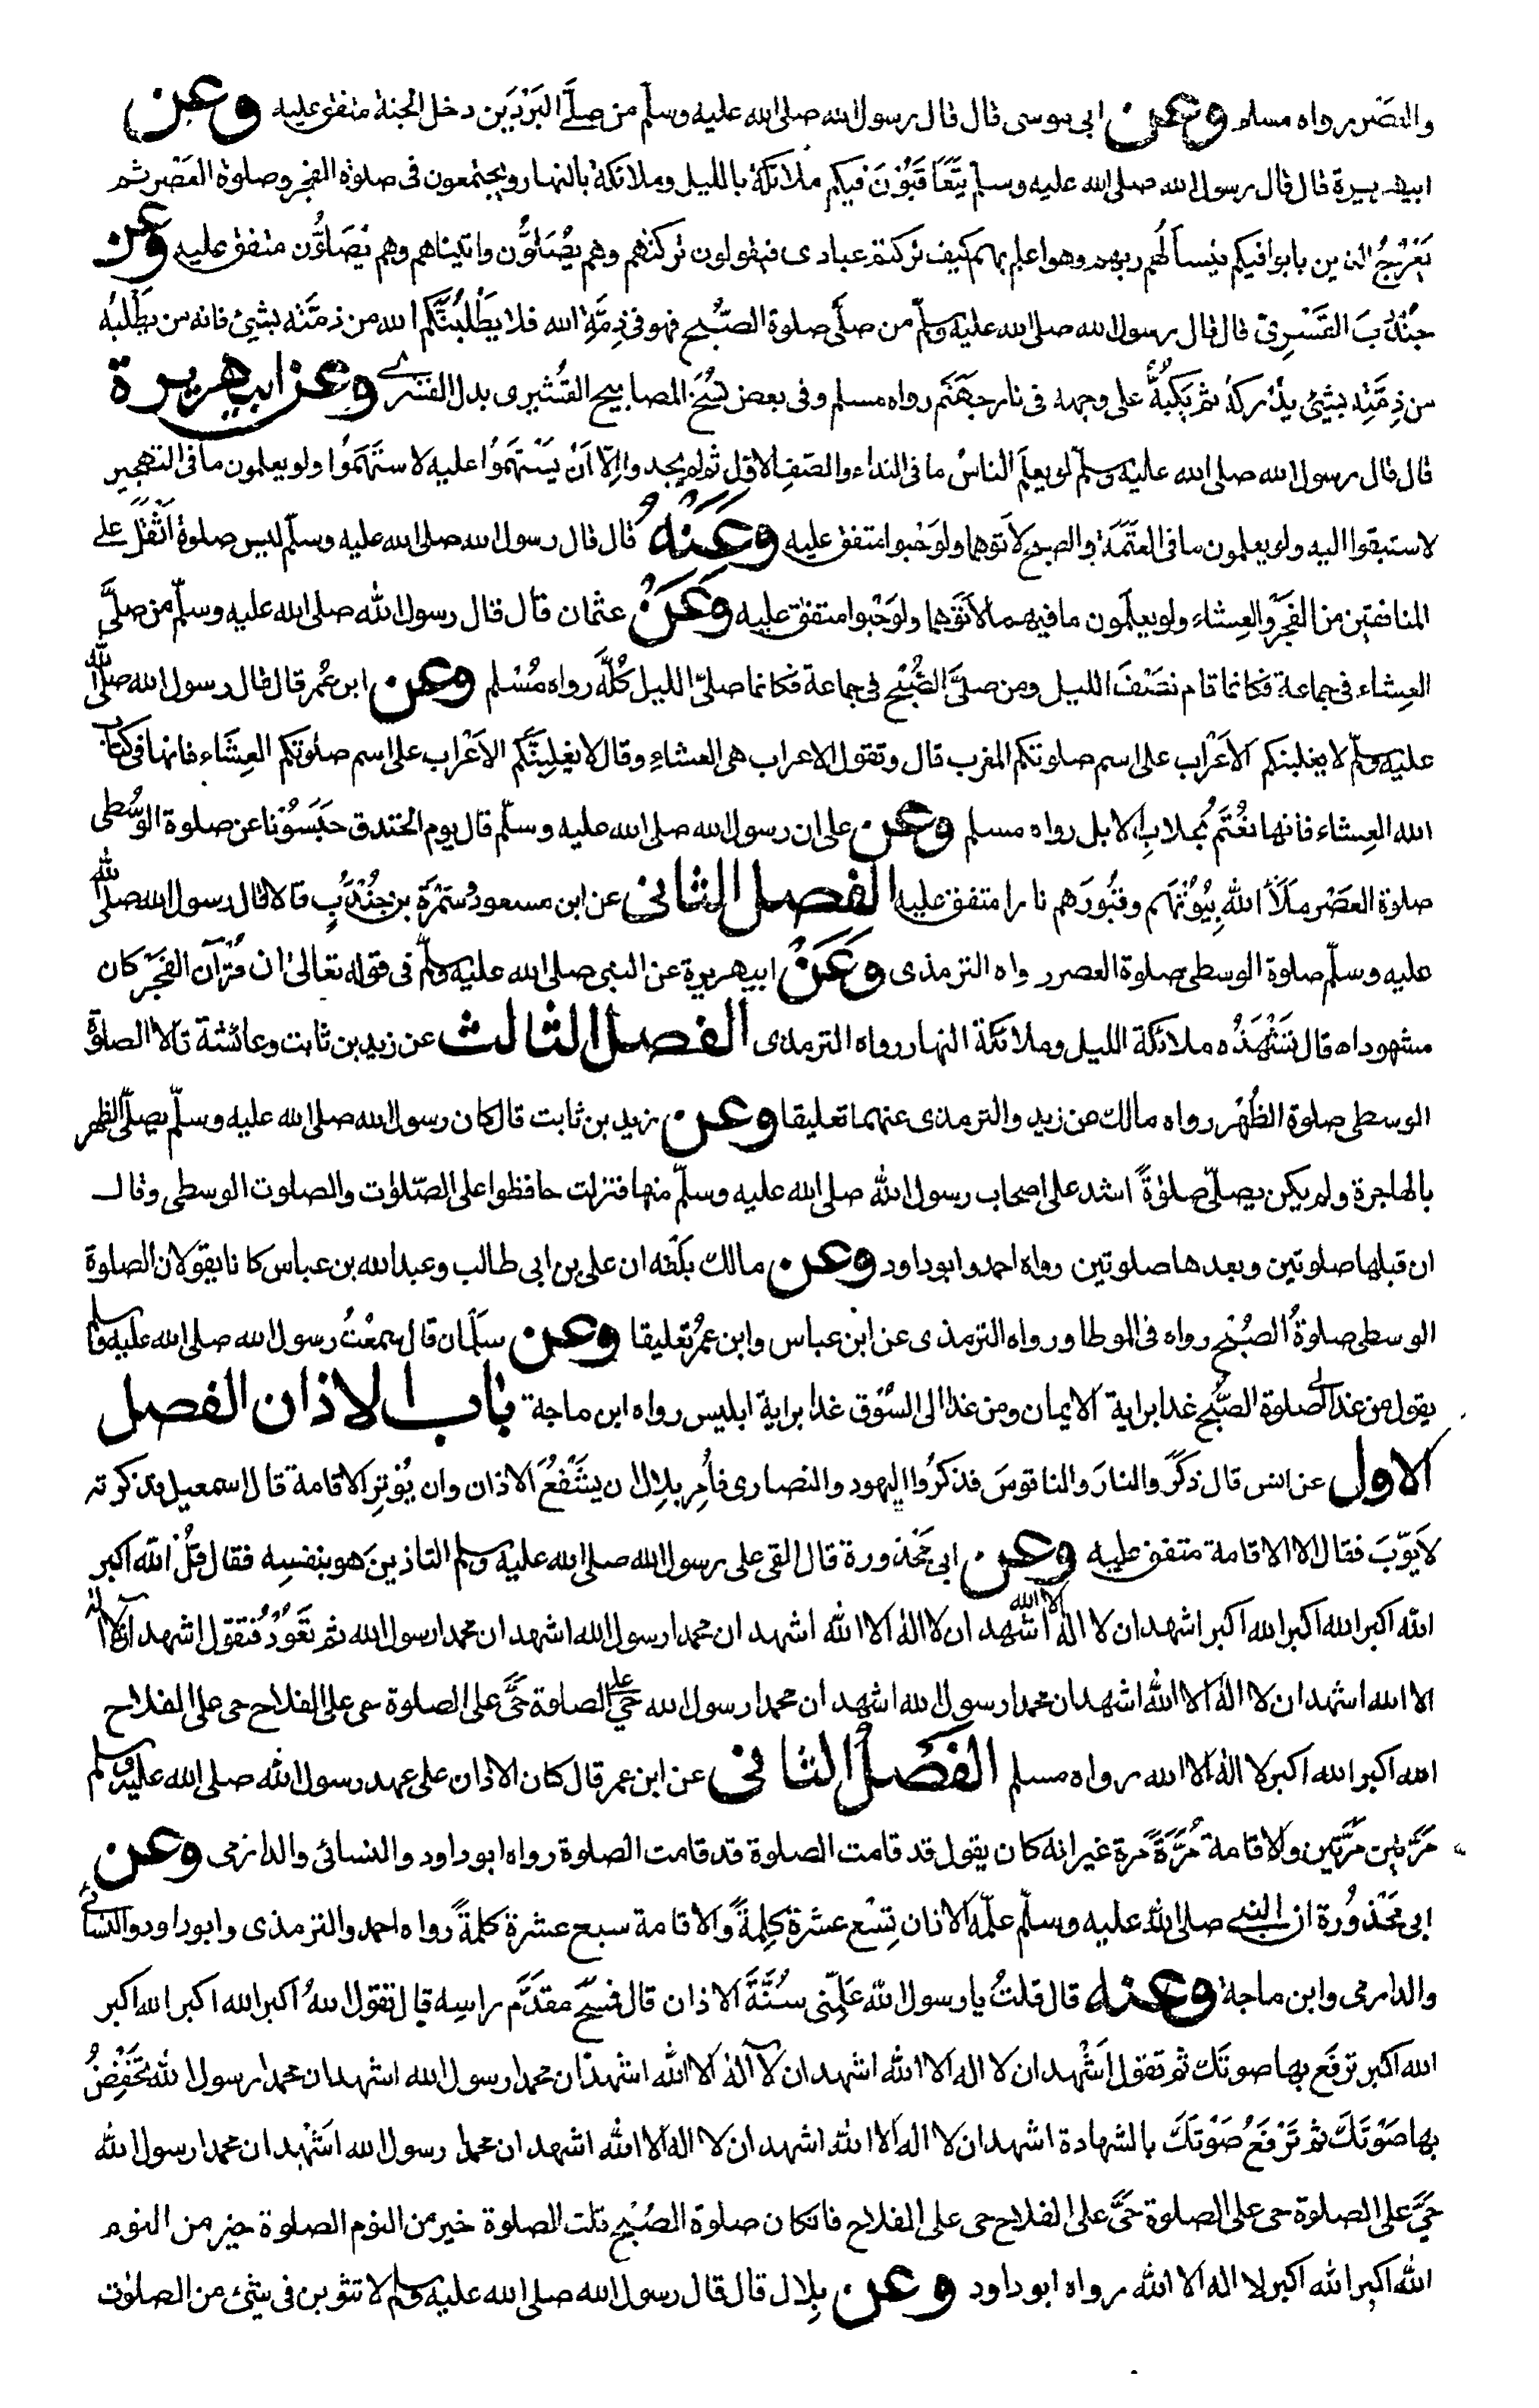 والعَصْر رواه مسلم وعن ابى موسى قال قال رسول الله صلى الله عليه وسلّم من صلَّے البَرْدَين دخل الجنة متفق عليه وعن
ابيهريرة قال قال رسول الله صلى الله عليه وسلّم يَتَعَاقَبُوْنَ فيكم ملائكة بالليل وملائكة بالنهار ويجتمعون فى صلوة الفجر وصلوة العَصْر ثم
يَعْرُجُ الذين باتوا فيكم فيسألهم ربهم وهو اعلم بهم كيف تركتم عبادى فيقولون تركنهم وهم يُصَلُّون واتيناهم وهم يُصَلُّون متفق عليه وعن
جُنْدُبَ القَسْرِىّ قال قال رسول الله صلى الله عليه وسلّم من صلَّى صلوة الصّبُح فهو فى ذِمَّةِ الله فلا يَطْلُبَنَّكُم الله من ذمَّته بشئ فانه من يطْلبُه
من ذِمَّتِه بشئ يُدْركهُ ثم يَكُبُّهُ على وجهه فى نار جهَنَّم رواه مسلم وفى بعض نُسَخ المصابيح القُشَيرى بدل القسرے وعن ابيهريرة
قال قال رسول الله صلى الله عليه وسلّم لو يعلَم الناسُ ما فى النداء والصّفِ الاوّل ثم لم يجدوا اِلّا اَنْ يَسْتَهِمُوْا عليه لاستَهَمُوْا ولو يعلمون ما فى التهجير
لاستبقوا اليه ولو يعلمون ما فى العَتَمَة والصبح لاَتوهما ولو حَبْوا متفق عليه وَعَنْهُ قال قال رسول الله صلى الله عليه وسلّم ليس صلوةٌ اَثْقَلَ على
المنافقين من الفَجْر والعِشاء ولو يعلَمون ما فيهما لاَتَوْهُما ولو حَبْوا متفق عليه وَعَنْ عثمان قال قال رسول الله صلى الله عليه وسلّم من صلَّى
العِشاء فى جماعة فكانما قام نصْفَ الليل ومن صلَّى الصُّبْح فى جماعة فكانما صلىّ الليل كُلَّهُ رواه مُسْلم وعن ابن عُمر قال قال رسول الله صلى الله
عليه وسلّم لا يغلبنكم الاَعْرَاب على اسم صلوتكم المغرب قال وتقول الاعراب هى العشاءِ وقال لا يغلِبَنَّكم الاَعْرَاب على اسم صلوتكم العِشَاء فانها فى كتاب
الله العِشاء فانها تُعْتَم بِحلابِ الابل رواه مسلم وعن على ان رسول الله صلى الله عليه وسلّم قال يوم الخندق حَبَسُوْنا عن صلوة الوُسْطى
صلوة العصْر مَلَأَ اللّهُ بُيُوْتَهم وقبُورَهم نارا متفق عليه الفصل الثانى عن ابن مسعود وسَمُرَةَ بن جُنْدَبٍ قالا قال رسول الله صلى الله
عليه وسلّم صلوة الوسطى صلوة العصر رواه الترمذى وَعَنْ ابيهريرة عن النبى صلى الله عليه وسلّم فى قوله تعالىٰ ان قُرْآن الفَجْر كان
مشهودا قال تَشْهَدُه ملائكة الليل وملائكة النهار رواه الترمذى الفصل الثالث عن زيد بن ثابت وعائشة قالا الصلوة
الوسطى صلوة الظُهْر رواه مالك عن زيد والترمذى عنهما تعليقا وعن زيد بن ثابت قال كان رسول الله صلى الله عليه وسلّم يصلّى الظهر
بالهاجرة ولم يكن يصلّى صلوٰةً اشد على اصحاب رسول الله صلى الله عليه وسلّم منها فنزلت حافظوا على الصّلوٰت والصلوت الوسطى وقال
ان قبلها صلوتين وبعدها صلوتين رواه احمد وابوداود وعن مالك بلَغَه ان على بن ابى طالب وعبد الله بن عباس كانا يقولان الصلوة
الوسطى صلوةُ الصُبْح رواه فى الموطا ورواه الترمذى عن ابن عباس وابن عمرُ تعليقا وعن سلْمان قال سمعْتُ رسول الله صلى الله عليه وسلم
يقول من غدا الى صلوة الصّبُح غدا براية الايمان ومن غدا الى السُّوق غدا براية ابليس رواه ابن ماجة باب الاذان الفصل
الاول عن انس قال ذكَرُوا النارَ والناقوسَ فذكرُوا اليهود والنصارى فأُمِر بلال ان يشْفعَ الاذان وان يُوْتِر الاقامة قال اسمعيل فذكرته
لاَيّوْبَ فقال الا الاقامة متفق عليه وعن ابى مَحْذورة قال القى على رسول الله صلى الله عليه وسلم التاذينَ هو بنفسِه فقال قُل اللّه اكبر
اللّه اكبر اللّه اكبر اللّه اكبر اشهد ان لا اله الا اللّه اشهد ان لا اله الا اللّه اشهد ان محمدا رسول الله اشهد ان محمدا رسول الله ثم تعُوْد فتقول اشهد ان لا اله
الا الله اشهد ان لا اله الا اللّه اشهد ان محمدا رسول الله اشهد ان محمدا رسول الله حَيّ على الصلوة حَيَّ على الصلوة حى على الفلاح حى على الفلاح
اللّه اكبر اللّه اكبر لا اله الا الله رواه مسلم الفَصْلُ الثانى عن ابن عمر قال كان الاذان على عهد رسول اللّه صلى الله عليه وسلم
مَرَّتين مَرَّتين والاقامة مَرَّةً مَّرة غير انه كان يقول قد قامت الصلوة قد قامت الصلوة رواه ابوداود والنسائى والدارمى وعن
ابى مَحْذُورة ان النبى صلى اللّه عليه وسلّم علّمه الاذان تِسْع عشرة كلِمةً والاقامة سبع عشرة كلمةً رواه احمد والترمذى وابوداود والنسائى
والدارمى وابن ماجة وعنه قال قلتُ يا رسول اللّه عَلِّمْنى سُنَّةَ الاذان قال فمسحَ مقدَّم راسِه قال تقول اللّهُ اكبر اللّه اكبر اللّه اكبر
اللّه اكبر ترفَع بها صوتَك ثم تقول اَشْهد ان لا اله الا اللّه اشهد ان لا اله الا اللّه اشهد ان محمدا رسول الله اشهد ان محمدا رسول اللّه تَخْفِضُ
بها صَوْتَكَ ثم تَرْفَعُ صَوْتَكَ بالشهادة اشهد ان لا اله الا اللّه اشهد ان لا اله الا اللّه اشهد ان محمدا رسول الله اشْهد ان محمدا رسول اللّه
حَيَّ على الصلوة حى على الصلوة حَيَّ على الفلاح حى على الفلاح فان كان صلوة الصُبْح قلت الصلوة خير من النوم الصلوة خير من النوم
اللّه اكبر اللّه اكبر لا اله الا اللّه رواه ابوداود وعن بِلال قال قال رسول الله صلى الله عليه وسلم لا تثوبن فى شئ من الصلوٰت